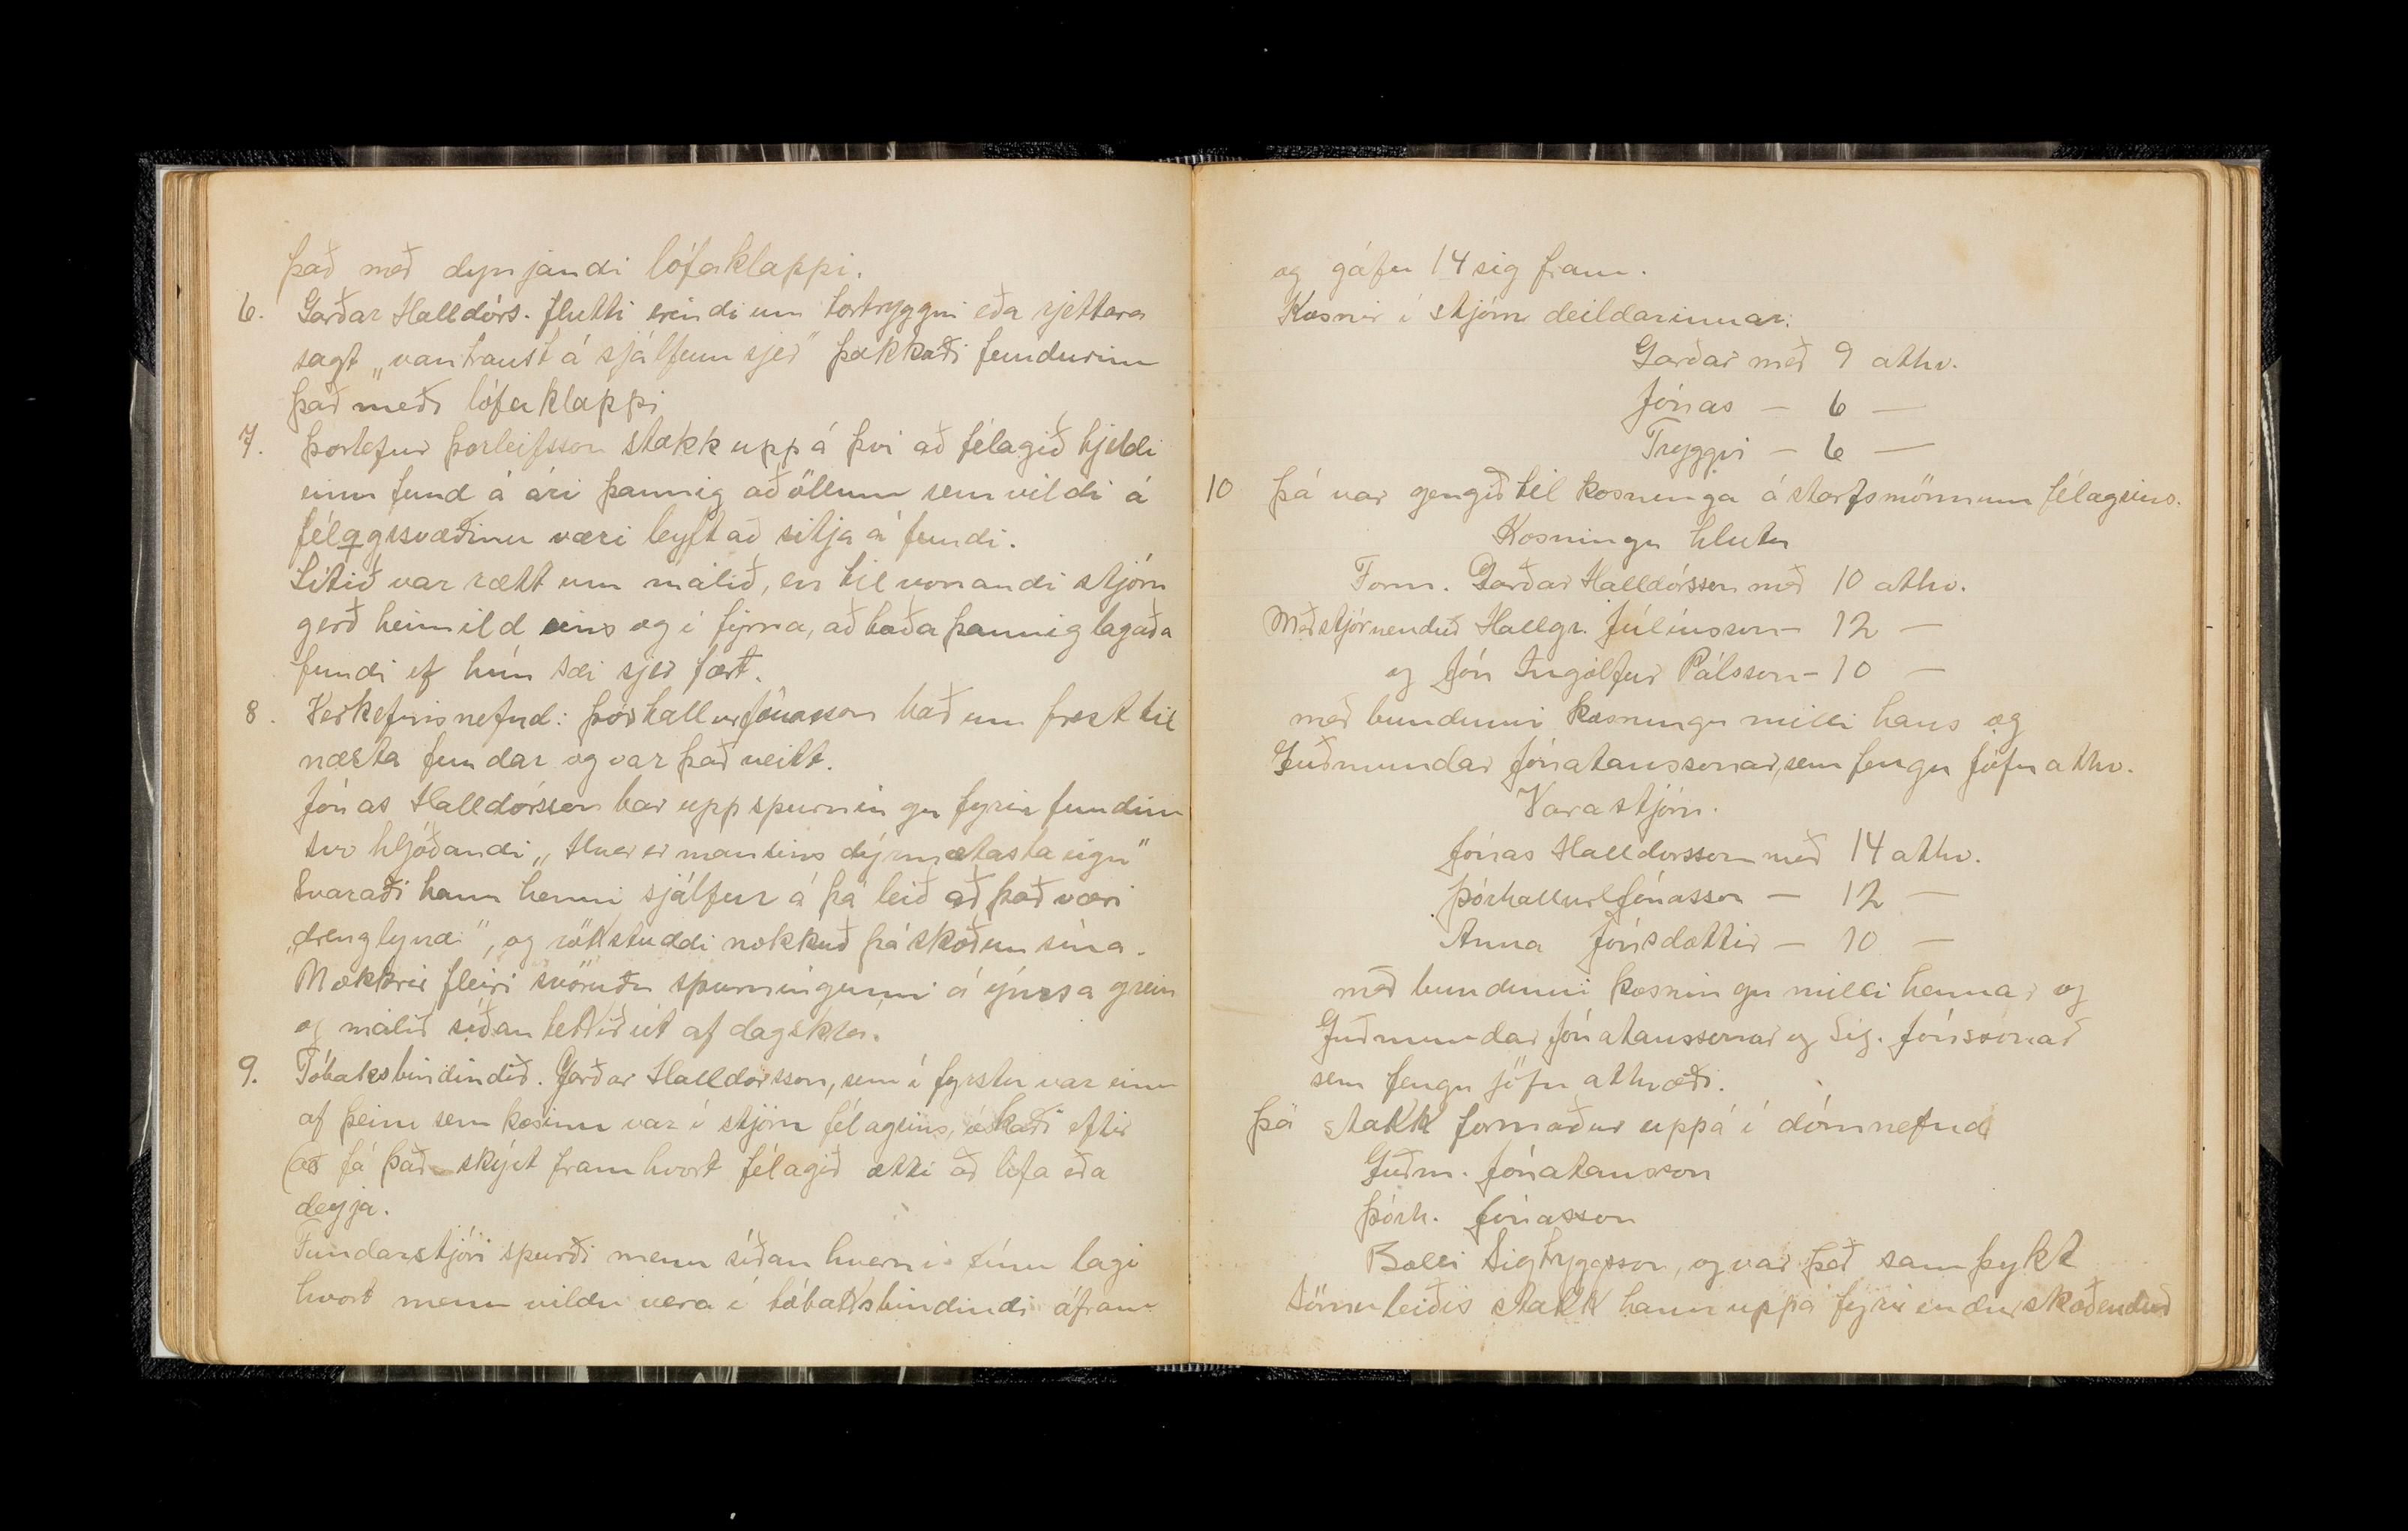 það með dynjandi lófaklappi.
6. Garðar Halldórs. flutti erindi um tortryggni eða rjettara
sagt „vantraust á sjálfum sjer" þakkaði fundurinn
það með lófaklappi
7. Þorleifur Þorleifsson stakk uppá því að félagið hjeldi
einn fund á ári þannig að öllum sem vildi á
félagssvæðinu væri leyft að sitja á fundi.
Lítið var rætt um málið, en tilvonandi stjórn
gerð heimild eins og í fyrra, að boða þannig lagaða
fundi ef hún sæi sjer fært.
8. Verkefnisnefnd: Þórhallur Jónasson bað um frest til
næsta fundar og var það veitt.
Jónas Halldórsson bar upp spurningu fyrir fundinn
svo hljóðandi „Hver er mansins dýrmætasta eign"
Svaraði hann henni sjálfur á þá leið að það væri
„drenglyndi", og rökstuddi nokkuð þá skoðun sína.
Nokkrir fleiri svöruðu spurningunni á ýmsa grein
og málið síðan tekið út af dagskrá.
9. Tóbaksbindindið. Garðar Halldórsson, sem í fyrstu var einn
af þeim sem kosinn var í stjórn félagsins, óskaði eftir
að fá það skýrt fram hvort félagið ætti að lifa eða
deyja.
Fundarstjóri spurði menn síðan hvern í sínu lagi
hvort menn vildu vera í tóbaksbindindi áfram
og gáfu 14 sig fram.
Kosnir í stjórn deildarinnar:
Garðar með 9 atkv.
Jónas — 6 —
Tryggvi — 6 —
10 Þá var gengið til kosninga á starfsmönnum félagsins.
Kosningu hlutu
Form. Garðar Halldórsson með 10 atkv.
Meðstjórnendur Hallgr. Júlíusson — 12 —
og Jón Ingólfur Pálsson — 10 —
með bundinni kosningu milli hans og
Guðmundar Jónatanssonar, sem fengu jöfn atkv.
Varastjórn.
Jónas Halldorsson með 14 atkv.
Þórhallur Jónasson — 12 —
Anna Jónsdóttir — 10 —
með bundinni kosningu milli hennar og
Guðmundar Jónatanssonar og Sig. Jónssonar
sem fengu jöfn atkvæði.
Þá stakk formaður uppá í dómnefnd
Guðm. Jónatansson
Þórh. Jónasson
Bolli Sigtryggsson, og var það samþykt
Sömuleiðis stakk hann uppá fyrir endurskoðendur